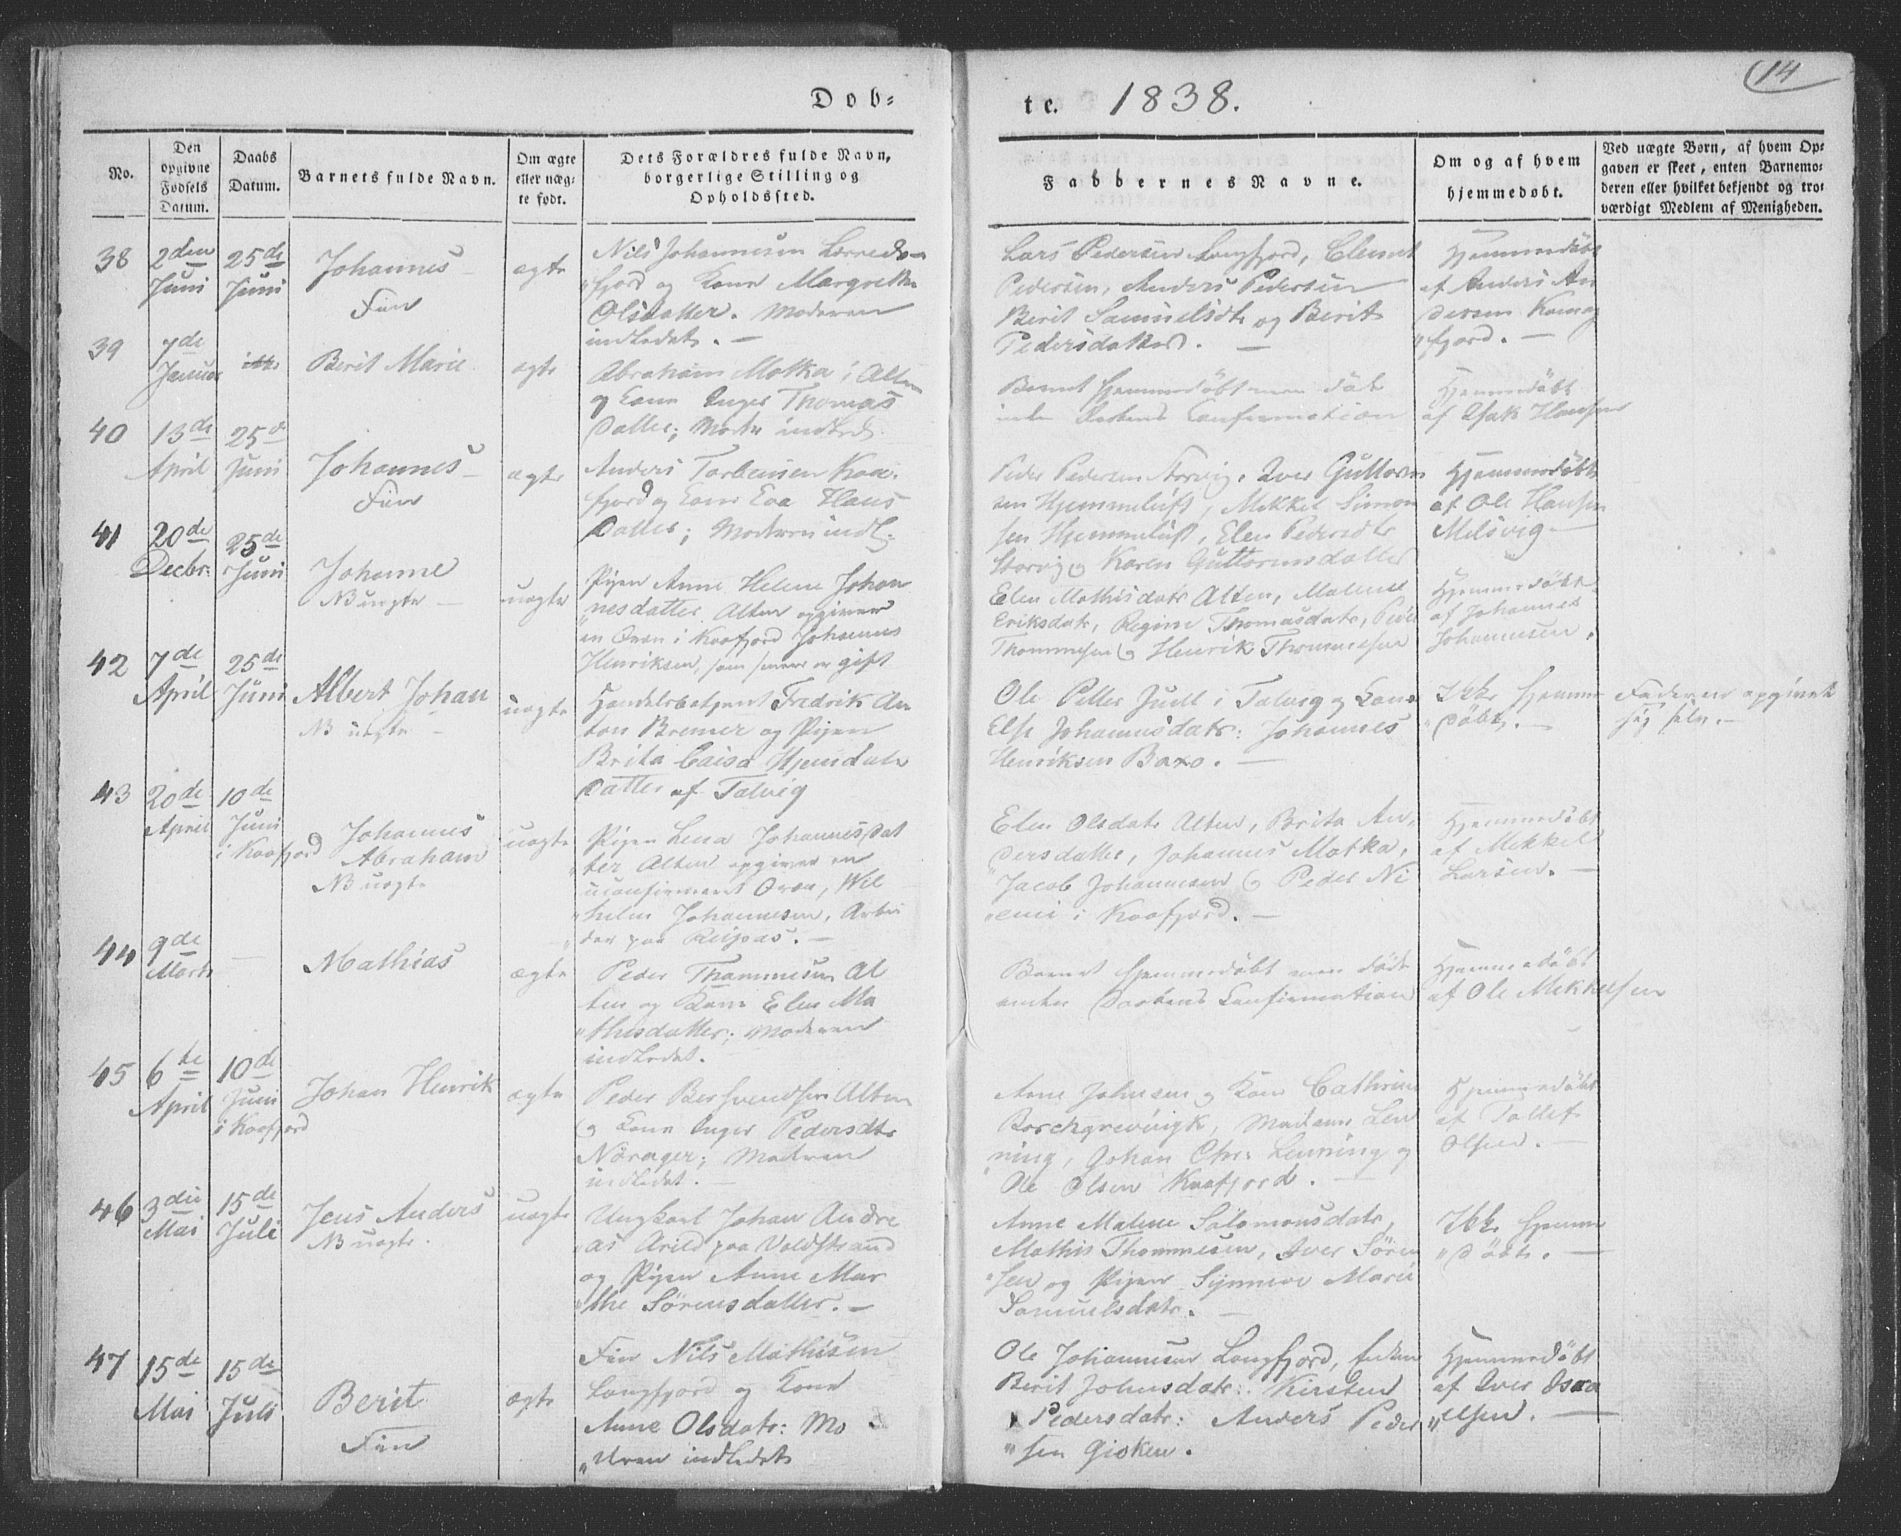 Døb-
te. 1838.
14
No.
Den opgivne Fødsels Datum.
Daabs Datum.
Barnets fulde Navn.
Om ægte eller uægte født.
Dets Forældres fulde Navn, borgerlige Stilling og Opholdssted.
Faddernes Navne.
Om og af hvem hjemmedøbt.
Ved uægte Børn, af hvem Opgaven er skeet, enten Barnemoderen eller hvilket bekjendt og troværdigt Medlem af Menigheden.
38
2den Juni
25de Juni
Johannes
Fin
ægte
Nils Johannesen
fjord og Kone Margrethe
Olsdatter. Moderen
indledet. —
Lars Pedersen Langfjord, Clemet
Pedersen, Anders Pedersen
Berit Samuelsdtr og Berit
Pedersdatter. —
Hjemmedøbt
af Anders An
dersen Kaa
fjord. —
39
7de Januar
Berit Marie
ægte
Abraham Motka i Alten
og Kone Inger Thomas
datter; Modr indled.
Barnet hjemmedøbt men død
inden Daabens Confirmation
Hjemmedøbt
af Isak Hansen
40
13de April
25de Juni
Johannes
Fin
ægte
Anders Torbensen Kaa-
fjord og Kone Eva Hans
datter; Moderen indl.
Peder Pedersen Storvig, Iver Guttorm
sen Hjemmeluft, Mikkel Simon
sen Hjemmeluft, Elen Pedersdtr
Storvig og Karen Guttormsdatter
Hjemmedøbt
af Ole Hansen
Melsvig
41
20de Decbr:
25de Juni
Johanne
NB uægte —
uægte
Pigen Anne Helene Johan
nesdatter Alten opgiver
en Qvæn i Kaafjord Johannes
Henriksen, som senere er gift
Elen Mathisdatr Alten, Malene
Eriksdatr, Regine Thomasdatr, Peder
Thommesen og Henrik Thommesen
Hjemmedøbt
af Johannes
Johannesen.
42
7de April
25de Juni
Albert Johan
NB uægte —
uægte
Handelsbetjent Fredrik An
ton Bremer og Pigen
Brita Caisa Hjendals
datter af Talvig
Ole Petter Juell i Talvig og Kone
Else Johannesdatr: Johannes
Henriksen Baxo. —
Ikke hjemme
døbt. —
Faderen opgivet
sig selv. —
43
20de April
10de Juni
i Kaafjord
Johannes
Abraham
NB uægte
uægte
Pigen Lena Johannesdat
ter Alten opgiver en
uconfirmeret Qvæn, Wil
helm Johannesen, Arbei
der paa Reipas. —
Elen Olsdatr Alten, Brita An,
dersdatter, Johannes Motka,
Jacob Johannesen og Peder Ni
emi i Kaafjord. —
Hjemmedøbt
af Mikkel
Larsen. —
44
9de Marts
—
Mathias
ægte
Peder Thommesen Al
ten og Kone Elen Ma
thisdatter; Moderen
indledet.
Barnet hjemmedøbt men død
under Daabens Confirmation
Hjemmedøbt
af Ole Mikkelsen
45
6te April
10de Juni
i Kaafjord
Johan Henrik
ægte
Peder Berhvendsen Alten
og Kone Inger Pedersdtr
Nørager; Moderen
indledet. —
Arne Johnsen og Kone Cathrine
Borchgrevingk, Madam Len
ning, Johan Chr: Lenning og
Ole Olsen Kaafjord. —
Hjemmedøbt
af Tollef
Olsen. —
46
3die Mai
15de Juli
Jens Anders
NB uægte.
uægte
Ungkarl Johan Andre
as Arild paa Voldstrand
og Pigen Anne Mar
the Sørensdatter. —
Anne Malene Salomonsdatr,
Mathis Thommesen, Iver Søren
sen og Pigen Synnøve Marie
Samuelsdatr. —
Ikke hjemme
døbt. —
47
15de Mai
15de Juli
Berit
Fin
ægte
Fin Nils Mathisen
Langfjord og Kone
Anne Olsdatr: Mo
deren indledet
Ole Johannesen Langfjord,
Berit Johnsdatr: Kirsten
Pedersdatr: Anders Peder
sen Gioken.
Hjemmedøbt
af Iver Isra
elsen. —